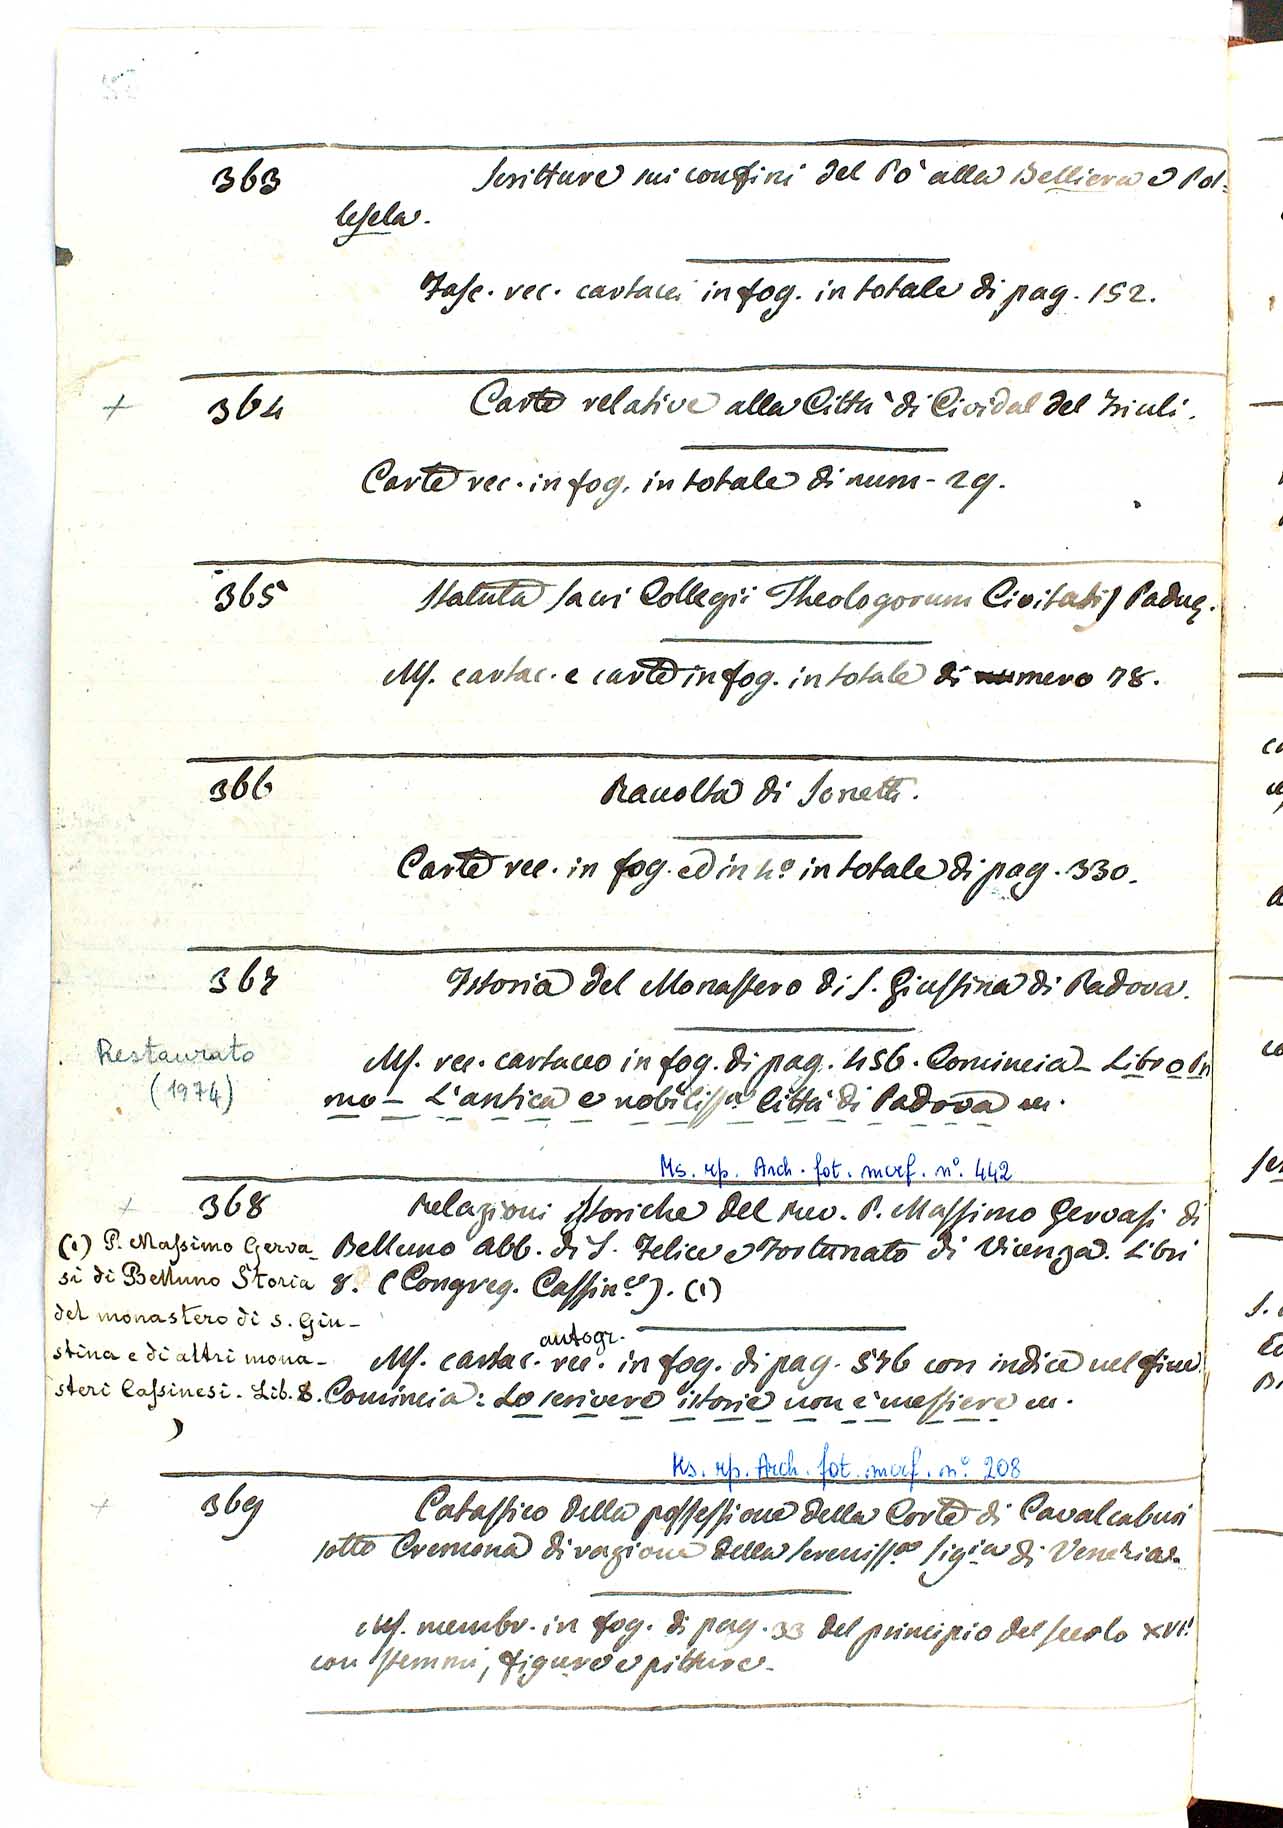 363 Scritture sui confini del Po alla Belliera e Pol=
lesela.
Fasc. rec. cartacei in fog. in totale di pag. 152.
+ 364 Carte relative alla Città di Cividal del Friuli.
Carte rec. in fog. in totale di num. 29.
365 Statuta Sacri Collegii Theologorum Civitatis Paduę.
Ms. cartac. e carte in fog. in totale di numero 78.
366 Raccolta di Sonetti.
Carte rec. in fog. ed in 4º in totale di pag. 330.
367 Istoria del Monastero di S. Giustina di Padova.
Restaurato
(1974)
Ms. rec. cartaceo in fog. di pag. 456. Comincia - Libro Pri
mo - L'antica e nobilissᵃ Città di Padova
Ms. rip. Arch. fot. marf. nº. 442
+ 368 Relazioni istoriche del Rev. P. Massimo Gervasi di
Belluno Abb. di S. Felice e Fortunato di Vicenza. Libri
8. (Congreg. Cassinᵉ). (1)
(1) P. Massimo Gerva_
si di Belluno Storia
del monastero di S. Giu_
stina e di altri mona_
steri Cassinesi. Lib. 8.
autogr.
Ms. cartac. rec. in fog. di pag. 576 con indice nel fine.
Comincia: Lo scrivere istorie non è mestiere
Ms. rip. Arch. fot. marf. nº. 208
+ 369 Catastico della possessione della Corte di Cavalcabuoi
sotto Cremona di ragione della Serenissᵃ Sigⁱᵃ di Venezia.
Ms. membr. in fog. di pag. 33 del principio del secolo XVI.
con stemmi, figure e pitture.